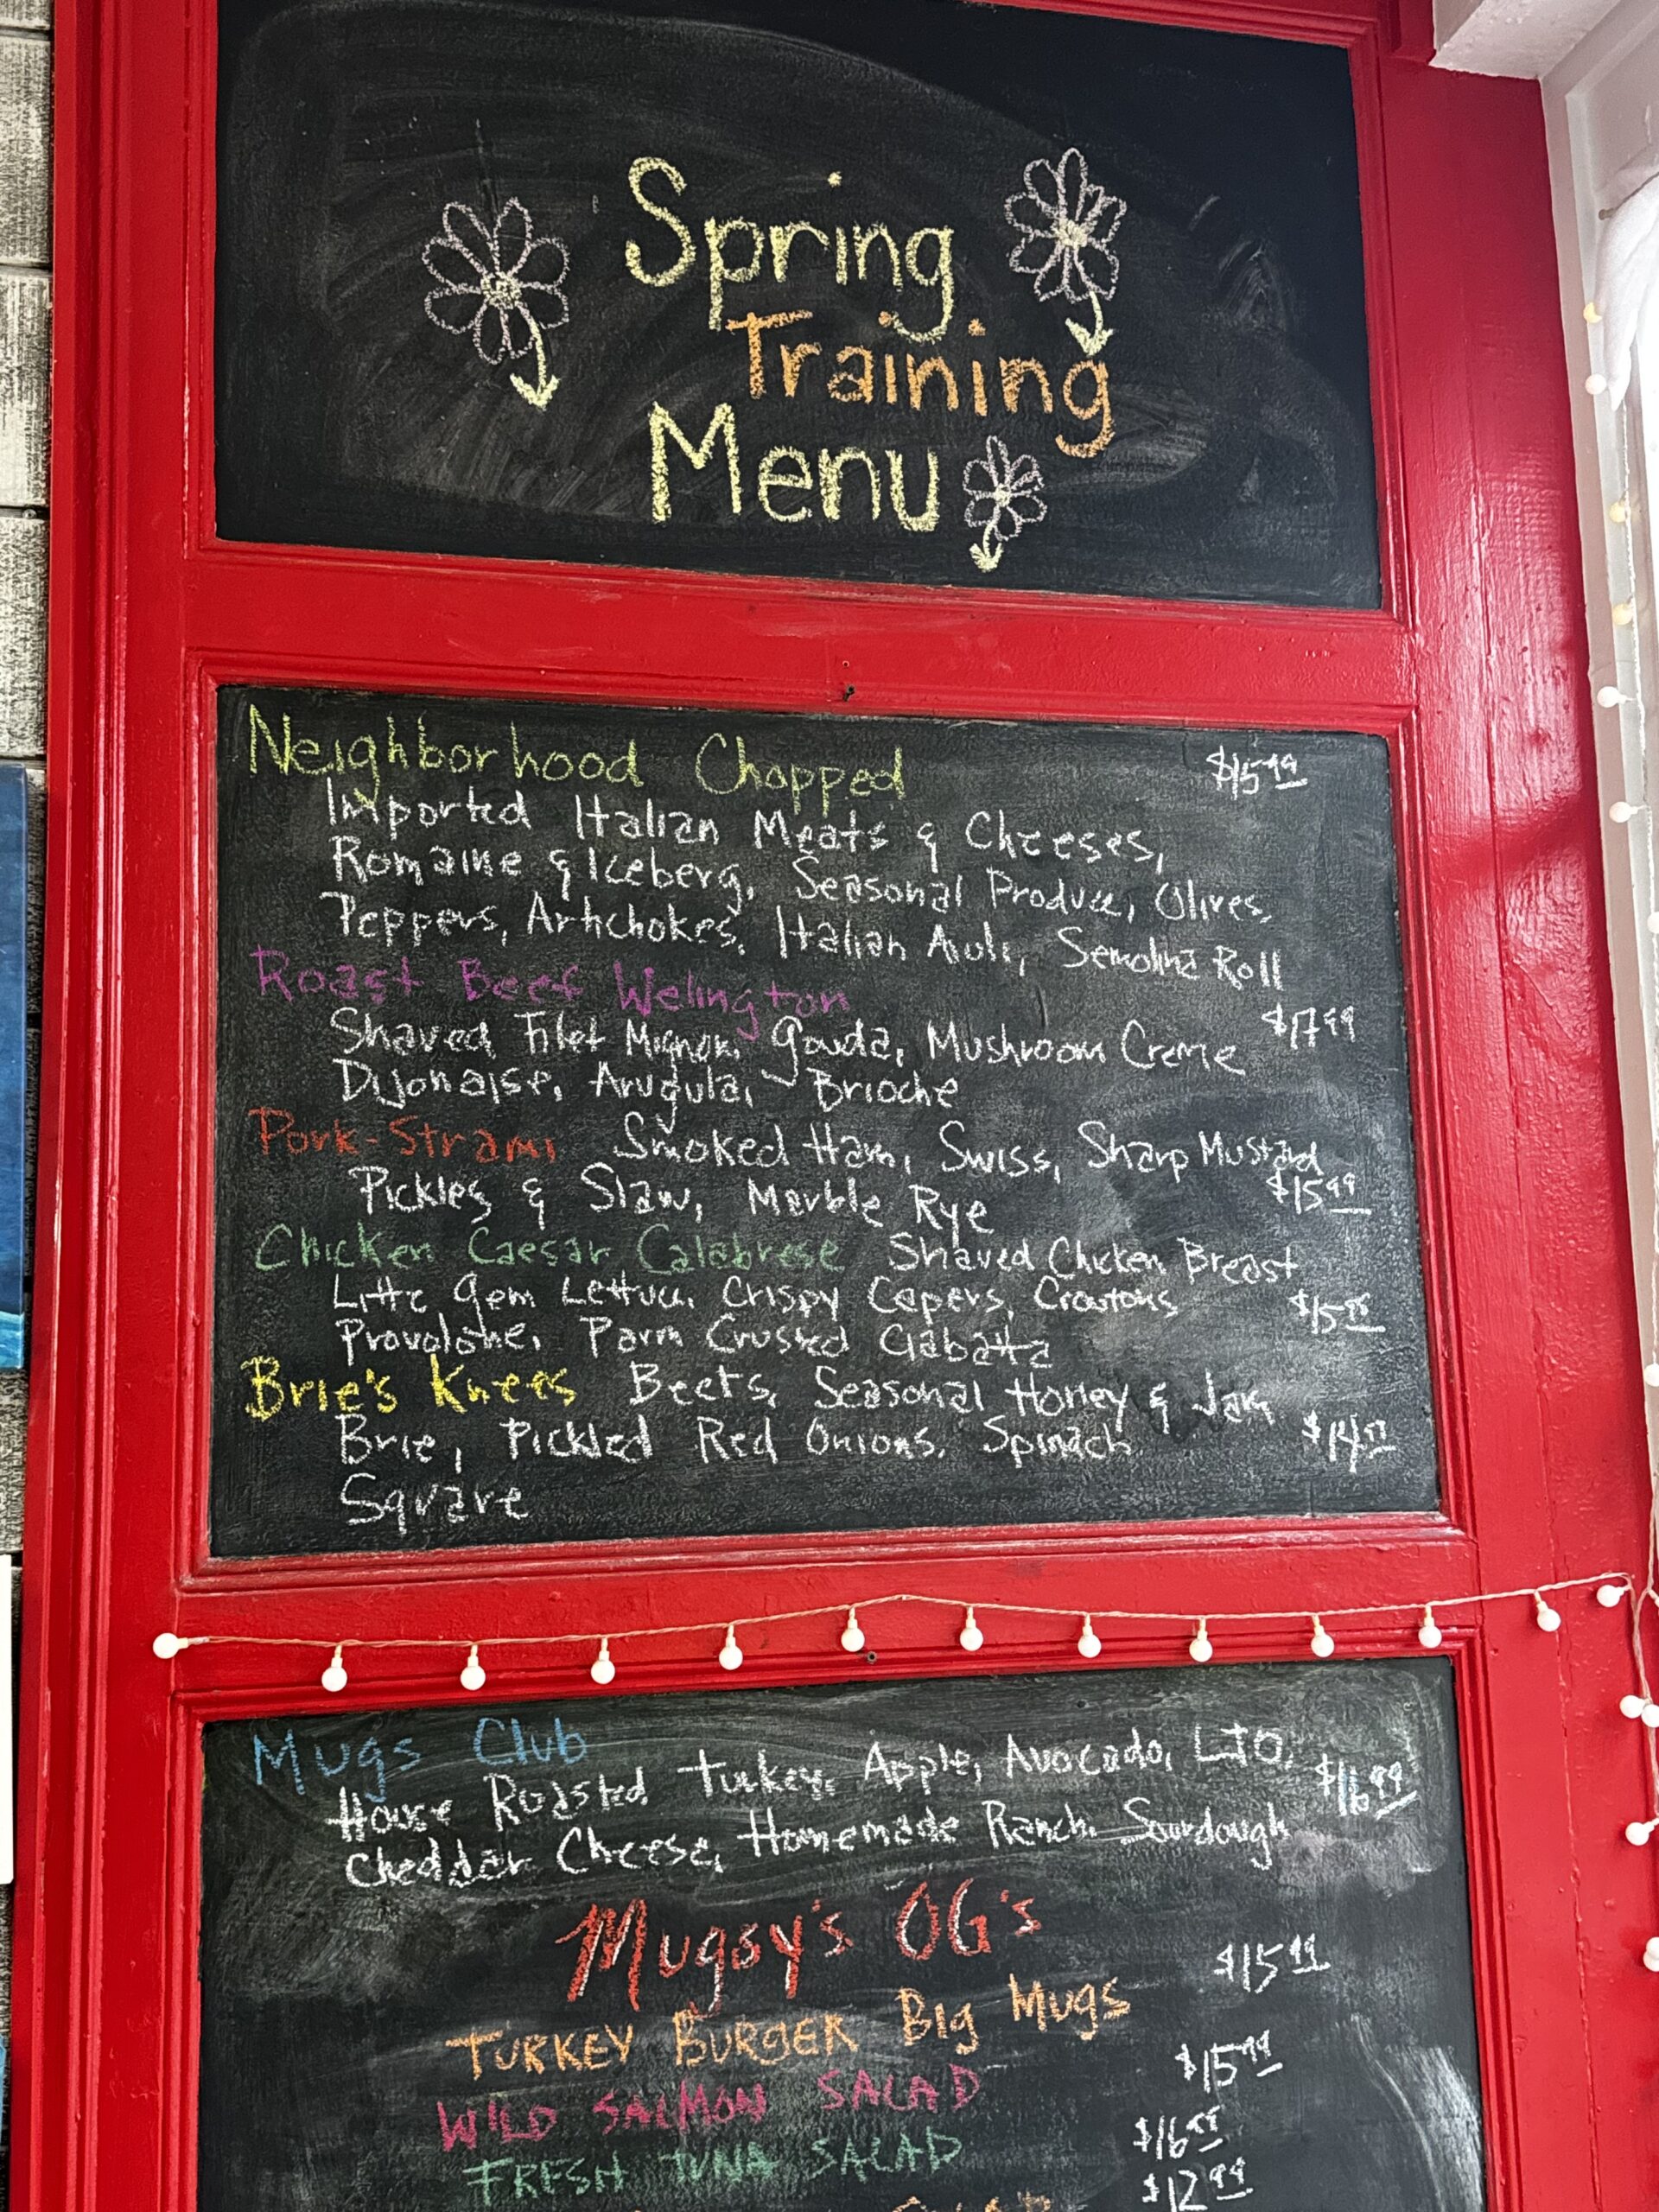 Spring
Training
Menu
Neighborhood Chopped $15.99
Imported Italian Meats & Cheeses,
Romaine & Iceberg, Seasonal Produce, Olives,
Peppers, Artichokes, Italian Aioli, Semolina Roll
Roast Beef Welington
Shaved Filet Mignon, Gouda, Mushroom Creme $17.99
Dijonaise, Arugula, Brioche
Pork-Strami Smoked Ham, Swiss, Sharp Mustard
Pickles & Slaw, Marble Rye $15.99
Chicken Caesar Calabrese Shaved Chicken Breast
Little Gem Lettuce, Crispy Capers, Croutons
Provolone, Parm Crusted Ciabatta
Brie's Knees Beets, Seasonal Honey & Jam
Brie, Pickled Red Onions, Spinach
Square
Mugs Club
House Roasted Turkey, Apple, Avocado, LTO, $16.99
Cheddar Cheese, Homemade Ranch, Sourdough
Mugsy's OG's
TURKEY BURGER Big Mugs $15.99
WILD SALMON SALAD $15.99
FRESH TUNA SALAD
$12.99